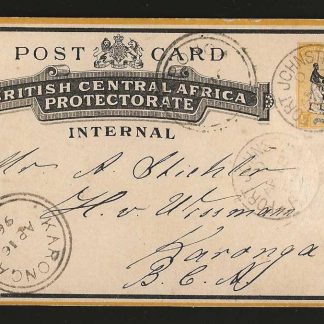 POST CARD
BRITISH CENTRAL AFRICA
PROTECTORATE
INTERNAL
FORT JOHNST
Mr A. Stichler
H. v. Wissmann
Karonga
B. C. A
KARONGA
AP 16
96
FORT